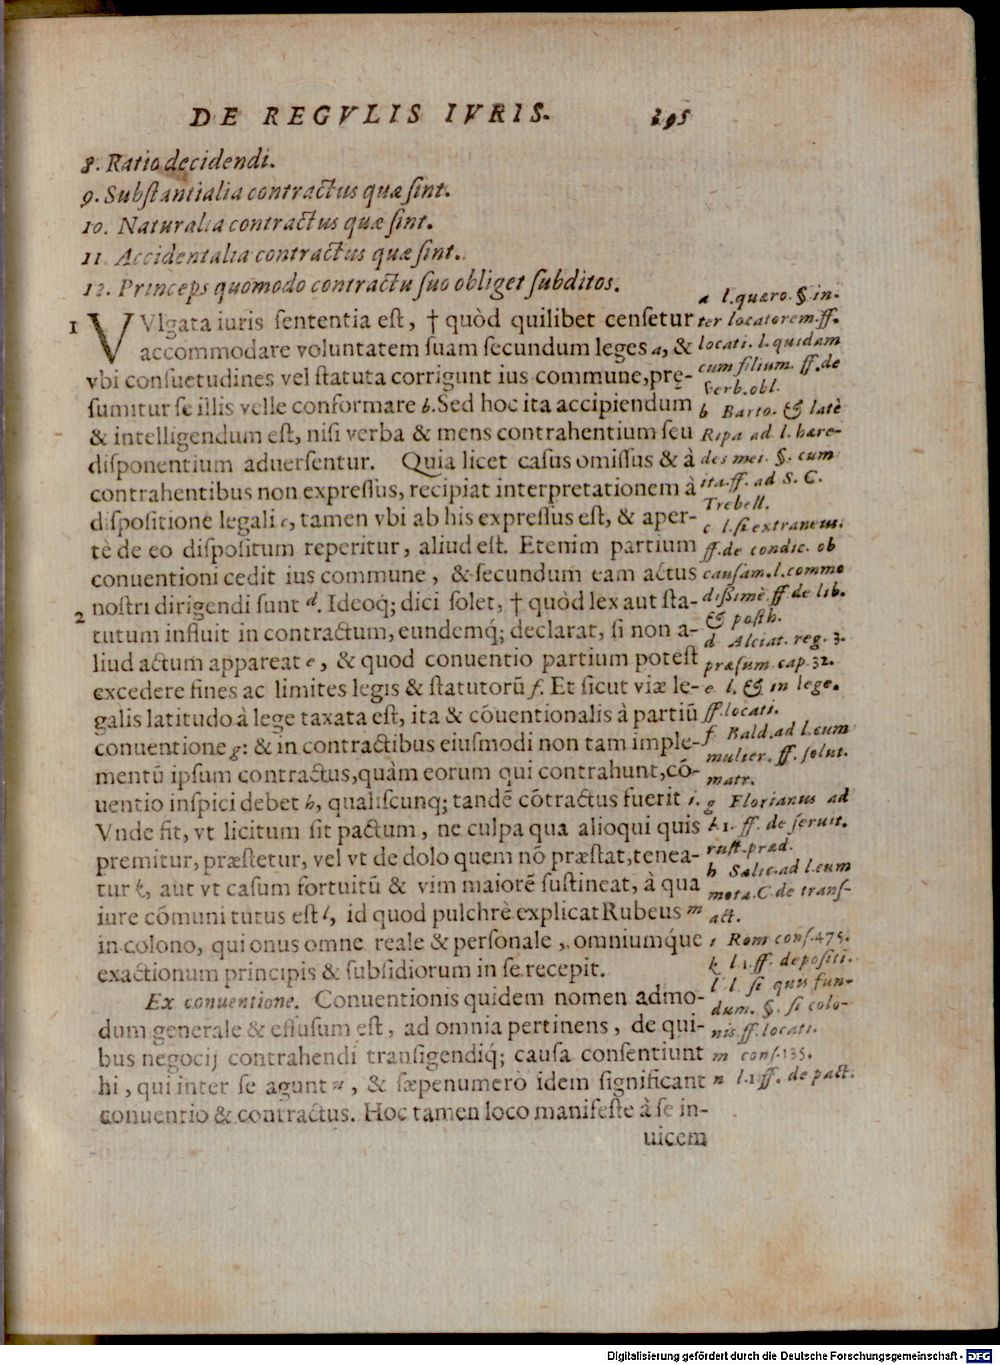 DE REGVLIS IVRIS. 295
8. Ratio decidendi.
9. Substantialia contractus quæ sint.
10. Naturalia contractus quæ sint.
11. Accidentalia contractus quæ sint.
12. Princeps quomodo contractu suo obliget subditos.
1 VVlgata iuris sententia est, † quòd quilibet censetur
accommodare voluntatem suam secundum leges a, &
vbi consuetudines vel statuta corrigunt ius commune, pręsumitur
sumitur se illis velle conformare b. Sed hoc ita accipiendum
& intelligendum est, nisi verba & mens contrahentium seu
disponentium aduersentur. Quia licet casus omissus & à
contrahentibus non expressus, recipiat interpretationem à
dispositione legali c, tamen vbi ab his expressus est, & aper-
tè de eo dispositum reperitur, aliud est. Etenim partium
conuentioni cedit ius commune, & secundum eam actus
nostri dirigendi sunt d. Ideoq́; dici solet, † quòd lex aut sta-
2
tutum influit in contractum, eundemq́; declarat, si non a-
liud actum appareat e, & quod conuentio partium potest
excedere fines ac limites legis & statutorũ f. Et sicut viæ le-
galis latitudo à lege taxata est, ita & cõuentionalis à partiũ
conuentione g: & in contractibus eiusmodi non tam imple-
mentũ ipsum contractus, quàm eorum qui contrahunt, cõ-
uentio inspici debet h, qualiscunq; tandẽ cõtractus fuerit i.
Vnde fit, vt licitum sit pactum, ne culpa qua alioqui quis
premitur, præstetur, vel vt de dolo quem nõ præstat, tenea-
tur k, aut vt casum fortuitũ & vim maiorẽ sustineat, à qua
iure cõmuni tutus est l, id quod pulchrè explicat Rubeus m
in colono, qui onus omne reale & personale, omniumq́ue
exactionum principis & subsidiorum in se recepit.
Ex conuentione. Conuentionis quidem nomen admo-
dum generale & effusum est, ad omnia pertinens, de qui-
bus negocij contrahendi transigendiq́; causa consentiunt
hi, qui inter se agunt n, & sæpenumerò idem significant
conuentio & contractus. Hoc tamen loco manifeste à se in-
uicem
a l. quæro. §. in-
ter locatorem. ff.
locati. l. quidam
cum filium. ff. de
verb. obl.
b Barto. & latè
Ripa ad l. hære-
des mei. §. cum
ita. ff. ad S. C.
Trebell.
c l. si extraneus.
ff. de condic. ob
causam. l. commo
dissimè. ff. de lib.
& posth.
d Alciat. reg. 3.
præsum. cap. 32.
e l. & in lege.
ff. locati.
f Bald. ad l. cum
mulier. ff. solut.
matr.
g Florianus ad
l. 1. ff. de seruit.
rust. præd.
h Salic. ad l. cum
mota. C. de trans-
act.
i Rom cons. 475.
k l. 1. ff. depositi.
l l. si quis fun-
dum. §. si colo-
nis. ff. locati.
m cons. 135.
n l. 1 ff. de pact.
Digitalisierung gefördert durch die Deutsche Forschungsgemeinschaft - DFG